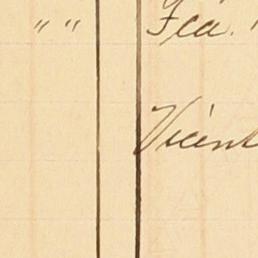 " " Fca. "
Vicent